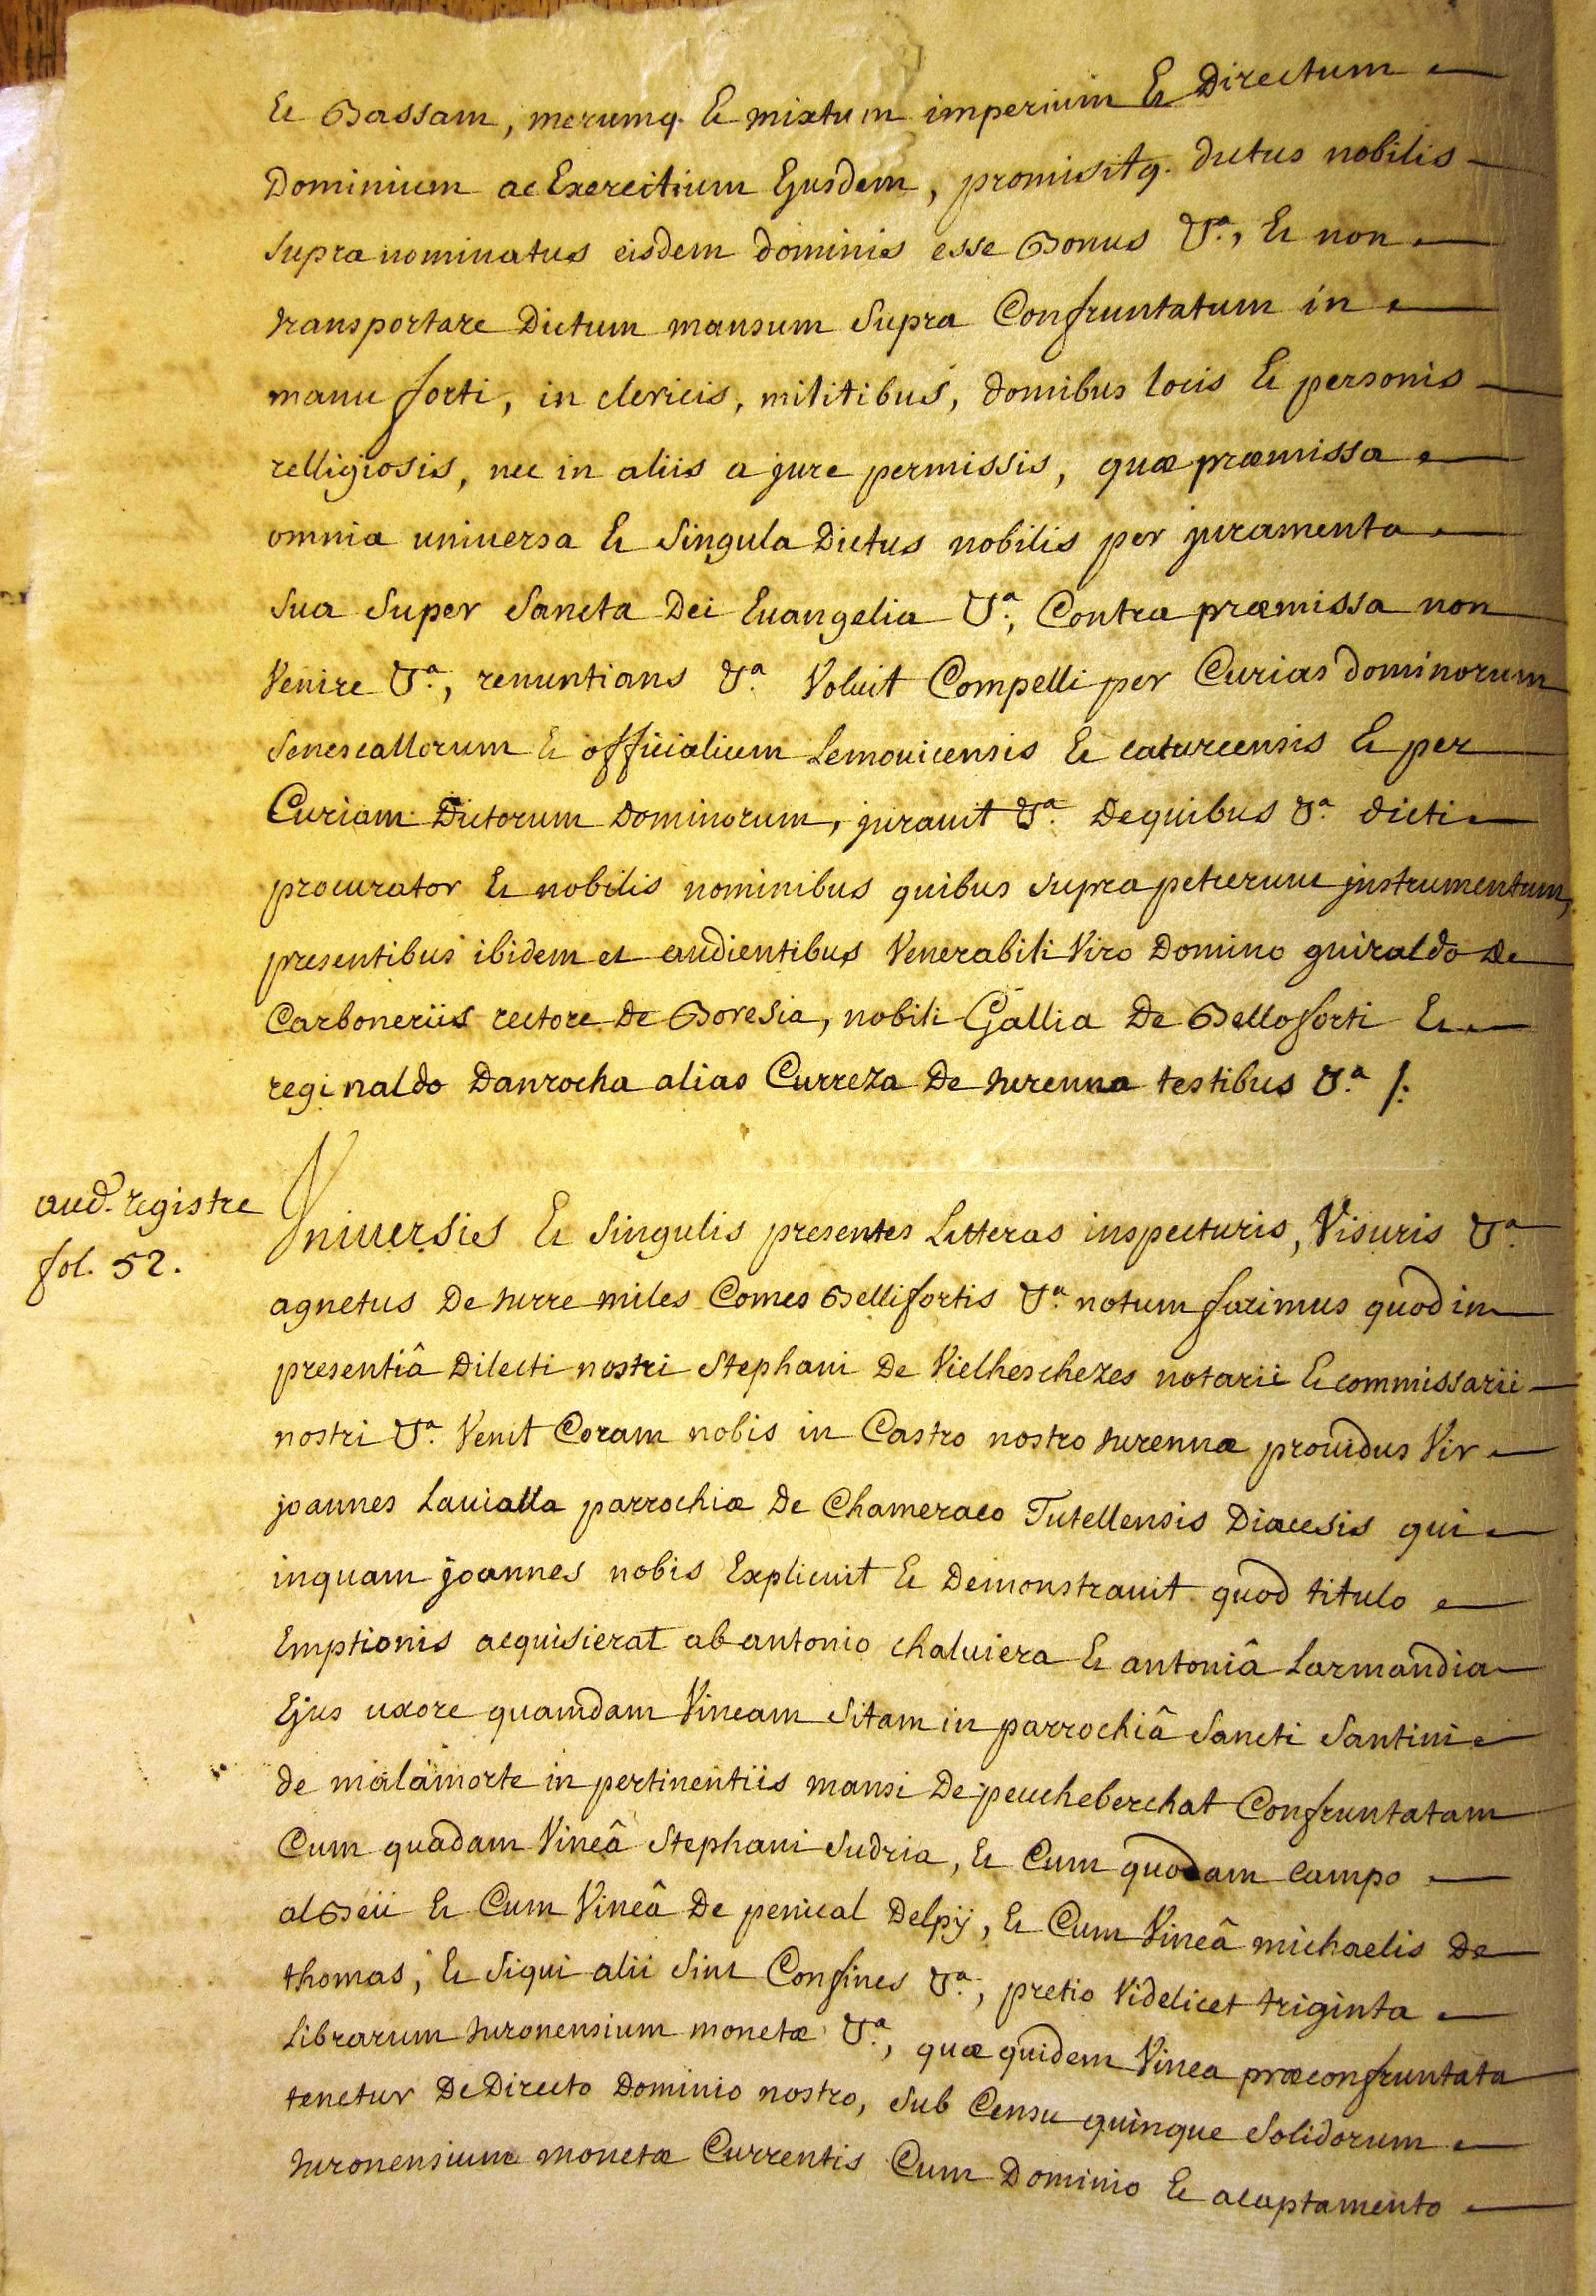 Et Bassam, merumq. Et mixtum imperium Et Directum
Dominium ac Exercitium Ejusdem, promisitq. dictus nobilis
supra nominatus eisdem dominis esse Bonus &a., Et non
transportare Dictum mansum supra Confruntatum in
manu forti, in clericis, militibus, domibus locis Et personis
relligiosis, nec in aliis a jure permissis, quæ præmissa
omnia universa Et singula Dictus nobilis per juramenta
sua super sancta Dei Euangelia &a., Contra præmissa non
Venire &a., renuntians &a. Voluit Compelli per Curias dominorum
senescallorum Et officialium Lemovicensis Et caturcensis Et per
Curiam Dictorum Dominorum, juravit &a. Dequibus &a. dicti
procurator Et nobilis nominibus quibus supra petierunt jnstrumentum,
presentibus ibidem et audientibus Venerabili Viro Domino guiraldo De
Carboneriis rectore De Boresia, nobili Gallia De Belloforti Et
reginaldo Danrocha alias Curreza De turenna testibus &a /:
aud. registre
fol. 52.
Vniuersis Et singulis presentes Litteras inspecturis, Visuris &a.
agnetus De turre miles Comes Bellifortis &a. notum facimus quod in
presentiâ Dilecti nostri Stephani De Vielheschezes notarii Et commissarii
nostri &a. Venit Coram nobis in Castro nostro turennæ providus Vir
joannes Lavialla parrochiæ De Chameraco Tutellensis Diœcesis qui
inquam joannes nobis Explicuit Et Demonstravit quod titulo
Emptionis acquisierat ab antonio chalviera Et antoniâ Larmandia
Ejus uxore quamdam Vineam sitam in parrochiâ sancti santini
de malamorte in pertinentiis mansi De peucheberchat Confruntatam
Cum quadam Vineâ Stephani sudria, Et Cum quodam campo
alBeii Et Cum Vineâ De penical Delpij, Et Cum Vineâ michaelis De
thomas, Et siqui alii sint Confines &a., pretio Videlicet triginta
Librarum turonensium monetæ &a., quæ quidem Vinea præconfruntata
tenetur De Directo Dominio nostro, sub Censu quinque solidorum
turonensium monetæ Currentis Cum Dominio Et acaptamento